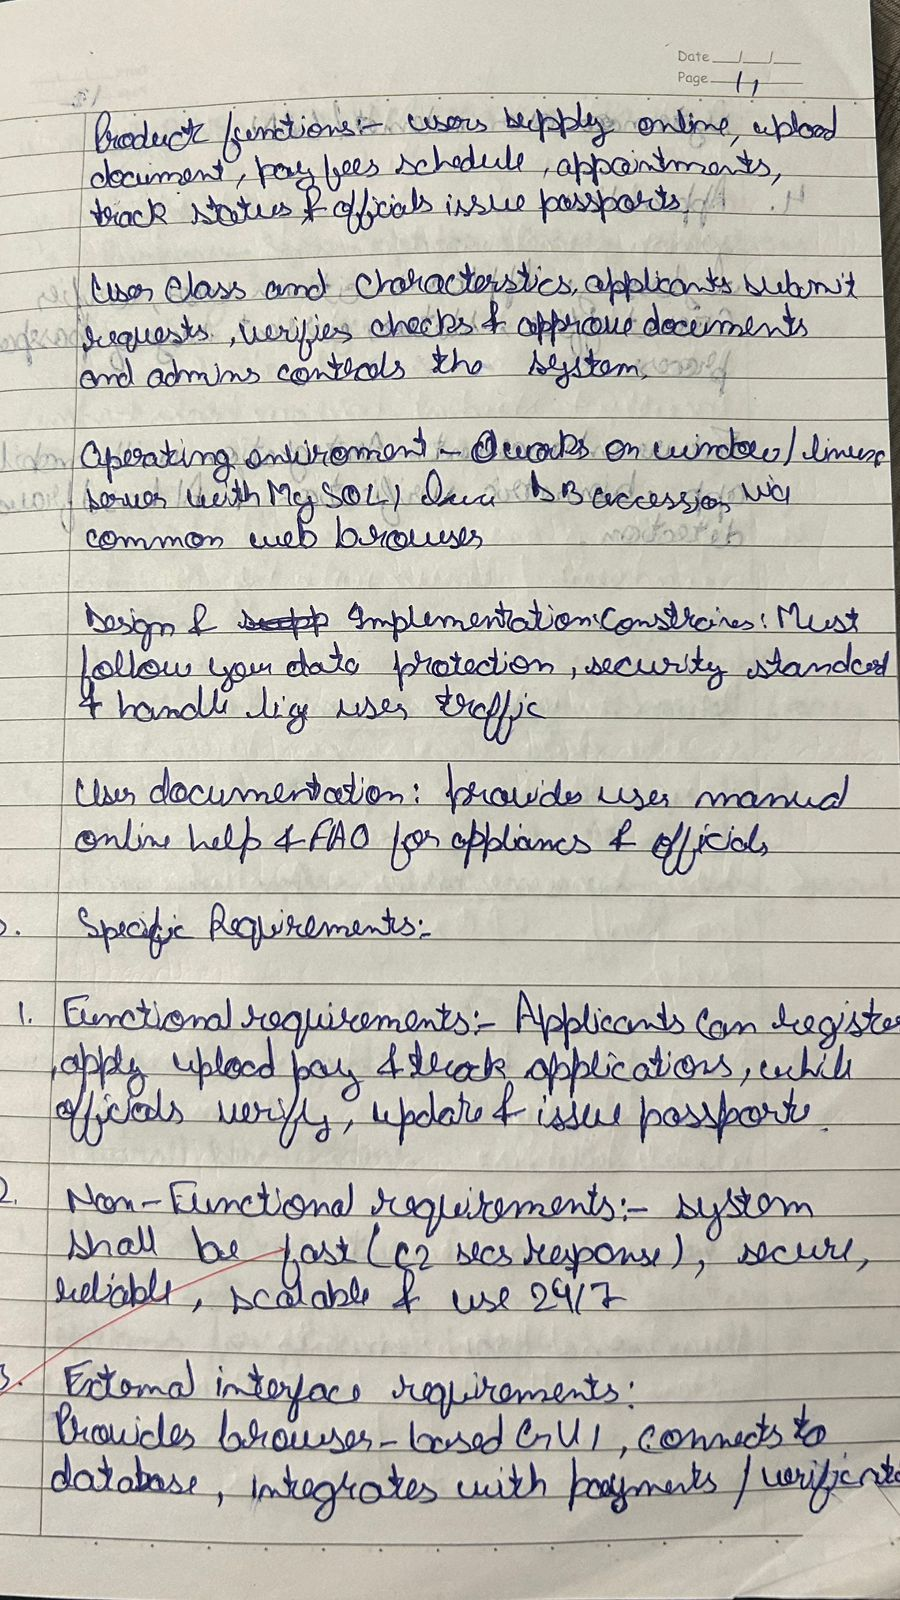 Date __/__/__
Page 11
Product functions:- users supply online, upload
document, pay fees schedule, appointments,
track status & officials issue passports.
User Class and Characterstics, applicants submit
requests, verifies checks & approve documents
and admins contecols the system.
Operating enviroment - works on window/linux
server with MySQL/ DB accession via
common web browses
Design & Implementation: Constraines: Must
follow your data protection, security standard
& handle user traffic
User documentation: provides user manual
online help & FAQ for appliancs & officials
3. Specific Requirements:-
1. Functional requirements:- Applicants can register
,apply upload pay & track applications, while
officials verify, update & issue passports.
2. Non-Functional requirements:- system
shall be fast (<2 secs response), secure,
reliable, scalable & use 24/7
3. External interface requirements:
Provides browser-based GUI, connects to
database, integrates with payments /